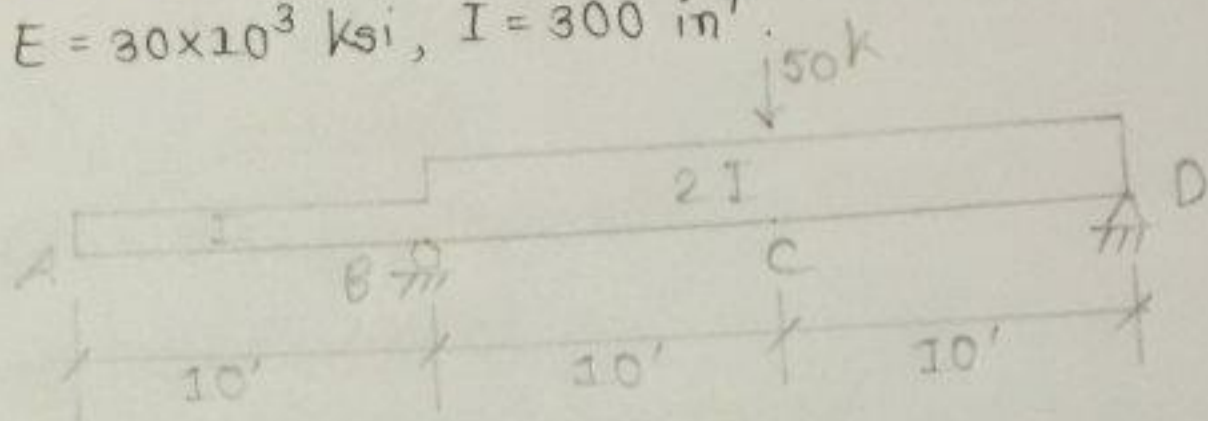 E = 30x10³ ksi, I = 300 in'.
50k
I
2 I
A
B
C
D
10'
10'
10'